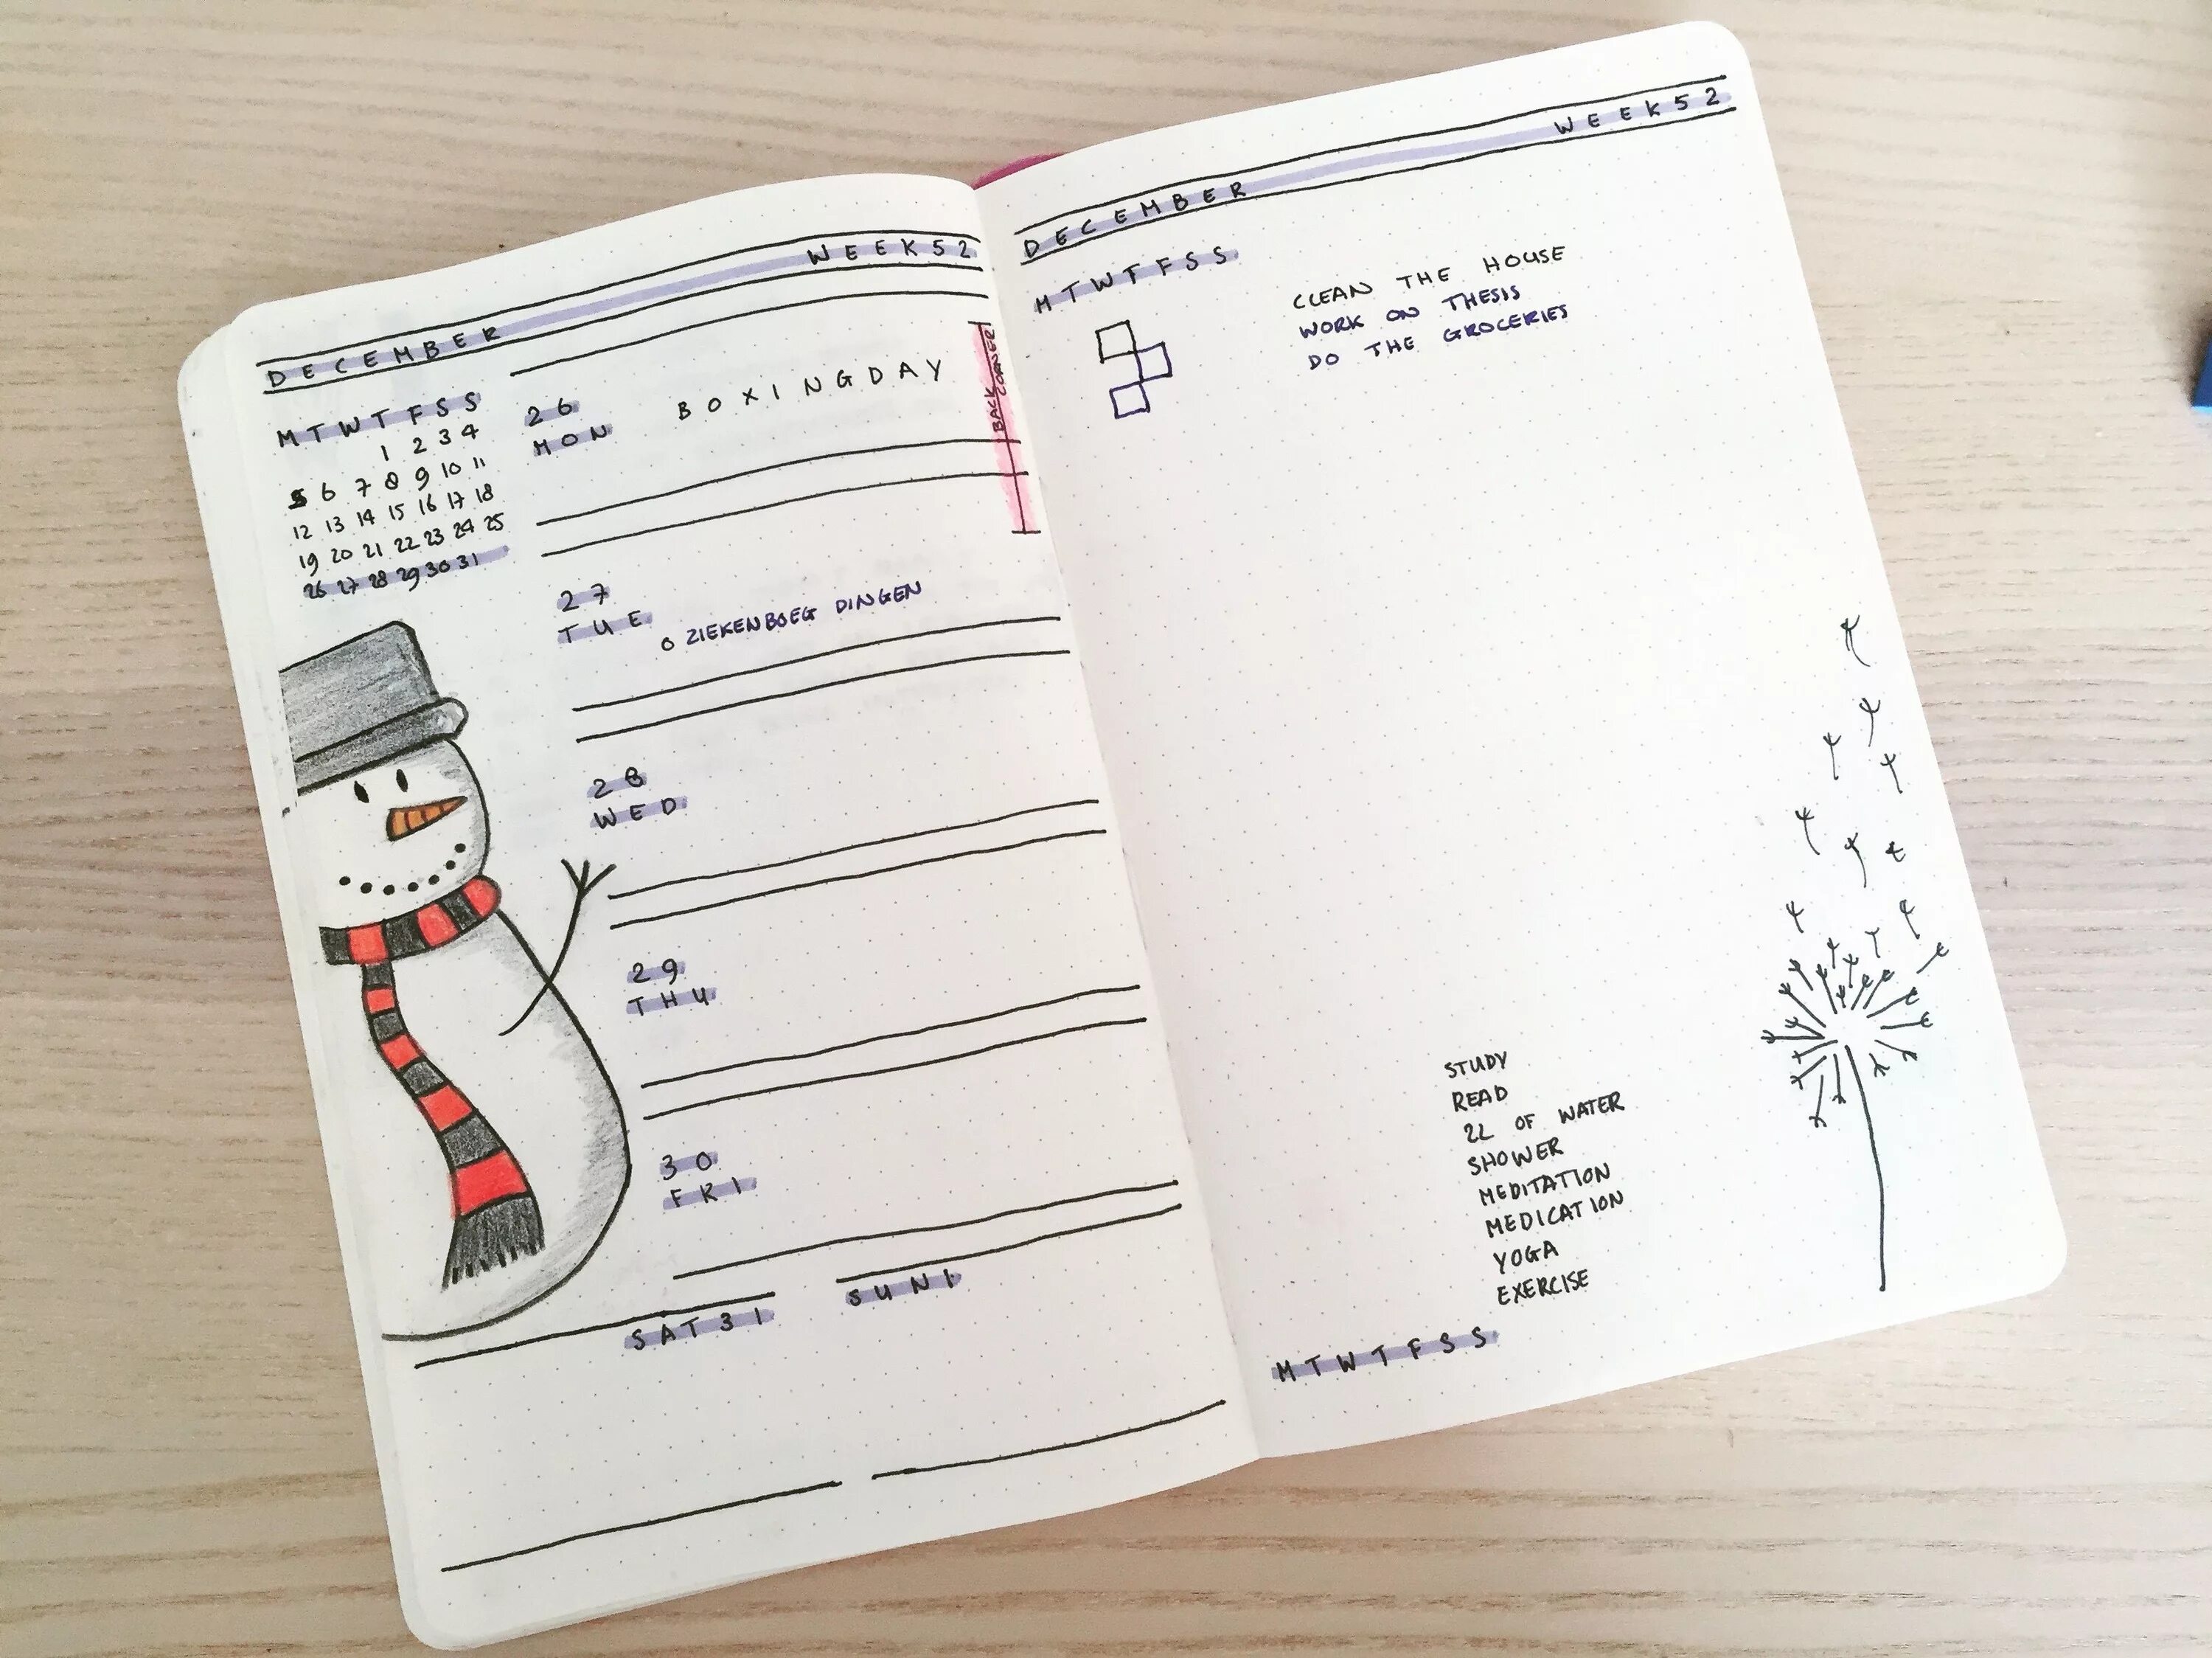 DECEMBER WEEK52
M T W T F S S
1 2 3 4
5 6 7 8 9 10 11
12 13 14 15 16 17 18
19 20 21 22 23 24 25
26 27 28 29 30 31
26
MON
BOXINGDAY
BACK
CORNER
27
TUE
o ZIEKENBOEG DINGEN
28
WED
29
THU
30
FRI
SAT31
SUN1
DECEMBER WEEK52
M T W T F S S
CLEAN THE HOUSE
WORK ON THESIS
DO THE GROCERIES
STUDY
READ
2L OF WATER
SHOWER
MEDITATION
MEDICATION
YOGA
EXERCISE
M T W T F S S